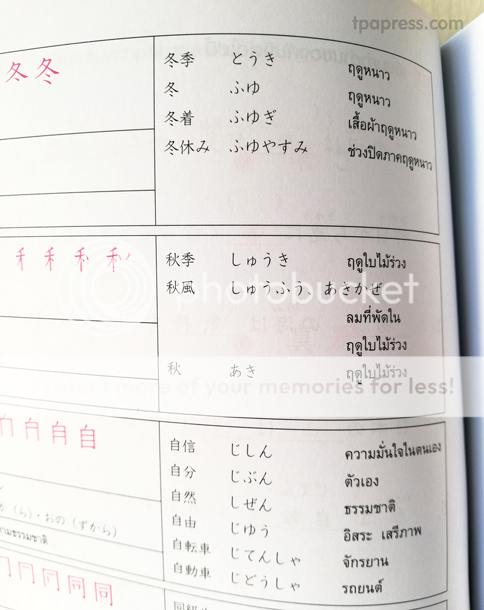 tpapress.com
冬 冬
冬季 とうき ฤดูหนาว
冬 ふゆ ฤดูหนาว
冬着 ふゆぎ เสื้อผ้าฤดูหนาว
冬休み ふゆやすみ ช่วงปิดภาคฤดูหนาว
秋季 しゅうき ฤดูใบไม้ร่วง
秋風 しゅうふう あきかぜ
photobucket
ลมที่พัดใน
ฤดูใบไม้ร่วง
秋 あき ฤดูใบไม้ร่วง
more of your memories for less!
自 自
自信 じしん ความมั่นใจในตนเอง
自分 じぶん ตัวเอง
自然 しぜん ธรรมชาติ
か (ら)・おの (ずから)
自由 じゆう อิสระ เสรีภาพ
ตามธรรมชาติ
自転車 じてんしゃ จักรยาน
自動車 じどうしゃ รถยนต์
同 同